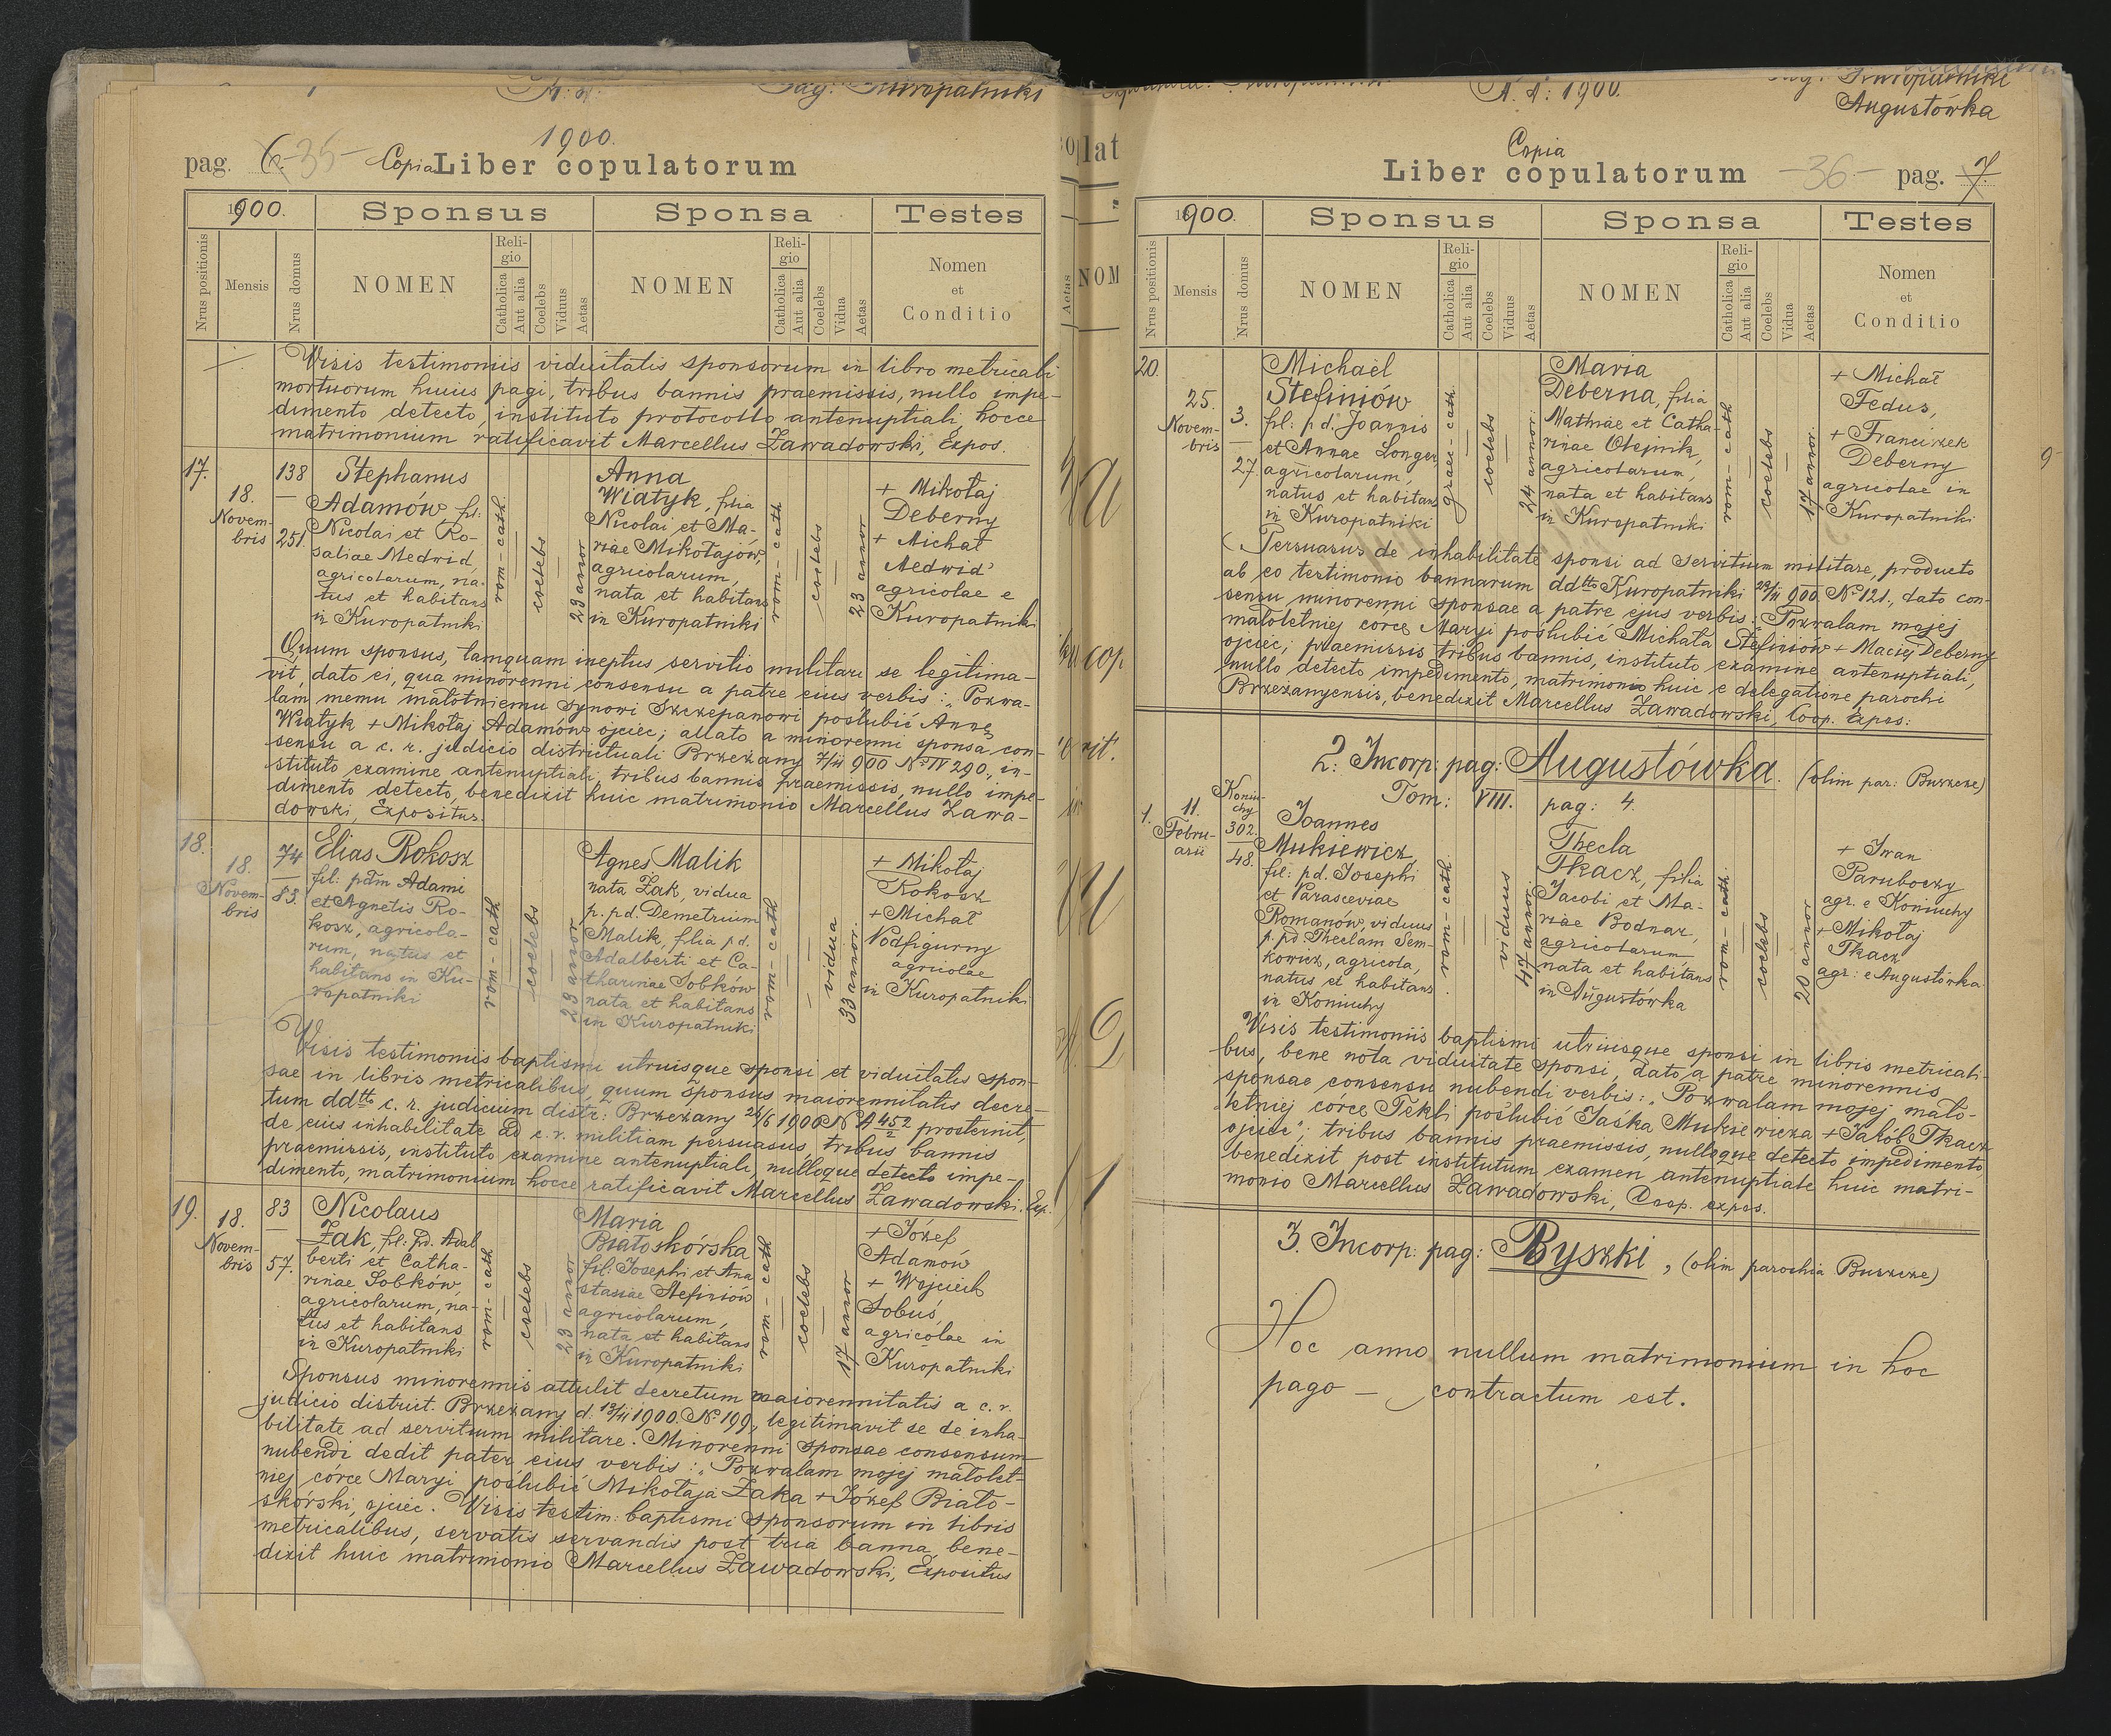 Pag: Kuropatniki
1900.
pag. 6. -35- Copia Liber copulatorum
1900. Sponsus Sponsa Testes
Nrus positionis Mensis Nrus domus NOMEN Religio Catholica Aut alia Coelebs Viduus Aetas NOMEN Religio Catholica Aut alia Coelebs Vidua Aetas Nomen et Conditio
Visis testimoniis viduitatis sponsorum in libro metricali
mortuorum huius pagi, tribus bannis praemissis, nullo impe-
dimento detecto, instituto protocollo antenuptiali, hocce
matrimonium ratificavit Marcellus Zawadowski, Expos.
17.
18.
Novem-
bris
138
251.
Stephanus
Adamów, fil:
Nicolai et Ro-
saliae Medwid,
agricolarum, na-
tus et habitans
in Kuropatniki
rom-cath
coelebs
23 annor
Anna
Wiatyk, filia
Nicolai et Ma-
riae Mikołajów,
agricolarum,
nata et habitans
in Kuropatniki
rom-cath
coelebs
23 annor
+ Mikołaj
Deberny
+ Michał
Medwid
agricolae e
Kuropatniki
Quum sponsus, tamquam ineptus servitio militari se legitima-
vit, dato ei, qua minorenni consensu a patre eius verbis: „Pozwa-
lam memu małotniemu synowi Szczepanowi poślubić Annę
Wiatyk + Mikołaj Adamów ojciec; allato a minorenni sponsa con-
sensu a c. r. judicio districtuali Brzeżany 7/11 900 No IV 290., in-
stituto examine antenuptiali, tribus bannis praemissis, nullo impe-
dimento detecto, benedixit huic matrimonio Marcellus Zawa-
dowski, Expositus.
18.
18.
Novem-
bris
74
83.
Elias Rokosz
fil: pdm Adami
et Agnetis Ro-
kosz, agricola-
rum, natus et
habitans in Ku-
ropatniki
rom-cath
coelebs
23 annor
Agnes Malik
nata Żak, vidua
p. pd. Demetrium
Malik, filia pd.
Adalberti et Ca-
tharinae Sobków
nata et habitans
in Kuropatniki
rom-cath
vidua
33 annor.
+ Mikołaj
Rokosz
+ Michał
Podfigurny
agricolae
in Kuropatniki
Visis testimoniis baptismi utriusque sponsi et viduitatis spon-
sae in libris metricalibus, quum sponsus maiorennitatis decre-
tum ddtto c. r. judicium distr: Brzeżany 26/6 1900 No A 452/2 prosternit,
de eius inhabilitate ad c. r. militiam persuasus, tribus bannis
praemissis, instituto examine antenuptiali, nulloque detecto impe-
dimento, matrimonium hocce ratificavit Marcellus Zawadowski. Exp.
19.
18.
Novem-
bris
83
57.
Nicolaus
Żak, fil: pd. Adal
berti et Catha-
rinae Sobków,
agricolarum, na-
tus et habitans
in Kuropatniki
rom-cath
coelebs
23 annor
Maria
Białoskórska
fil: Josephi et Ana
stasiae Stefiniów
agricolarum,
nata et habitans
in Kuropatniki
rom-cath
coelebs
17 annor
+ Józef
Adamów
+ Wojciech
Sobuś
agricolae in
Kuropatniki
Sponsus minorennis attulit decretum maiorennitatis a c. r.
judicio district. Brzeżany d. 13/11 1900. No 199., legitimavit se de inha-
bilitate ad servitium militare. Minorenni sponsae consensum
nubendi dedit pater eius verbis: „Pozwalam mojej małolet-
niej córce Maryi poślubić Mikołaja Żaka + Józef Biało-
skórski, ojciec. Visis testim: baptismi sponsorum in libris
metricalibus, servatis servandis post tria banna bene-
dixit huic matrimonio Marcellus Zawadowski, Expositus
A. D: 1900.
Kuropatniki
Augustówka
Copia
Liber copulatorum -36- pag. 7.
1900. Sponsus Sponsa Testes
Nrus positionis Mensis Nrus domus NOMEN Religio Catholica Aut alia Coelebs Viduus Aetas NOMEN Religio Catholica Aut alia Coelebs Vidua Aetas Nomen et Conditio
20.
25.
Novem-
bris
3.
27.
Michaël
Stefiniów
fil: pd. Joannis
et Annae Longer,
agricolarum,
natus et habitans
in Kuropatniki
graec-cath.
coelebs
24 annor.
Maria
Deberna, filia
Mathiae et Catha-
rinae Olejnik,
agricolarum,
nata et habitans
in Kuropatniki
rom-cath
coelebs
17 annor.
+ Michał
Fedus,
+ Franciszek
Deberny
agricolae in
Kuropatniki
Persuasus de inhabilitate sponsi ad servitium militare, producto
ab eo testimonio bannarum ddtto Kuropatniki 900 No 121., dato con-
sensu minorenni sponsae a patre ejus verbis: „Pozwalam mojej
małoletniej córce Maryi poślubić Michała Stefiniów + Maciej Deberny
ojciec; praemissis tribus bannis, instituto examine antenuptiali,
nullo detecto impedimento, matrimonio huic e delegatione parochi
Brzeżanyensis, benedixit Marcellus Zawadowski, Coop. expos:
2. Incorp: pag: Augustówka. (olim par: Buszcze)
Tom: VIII. pag: 4.
1.
11.
Febru-
arii
Koniu-
chy
302.
48.
Joannes
Mukiewicz,
fil: pd. Josephi
et Parasceviae
Romanów, viduus
p. pd Theclam Sem-
kowicz, agricola,
natus et habitans
in Koniuchy
rom-cath.
viduus
47 annor
Thecla
Tkacz, filia
Jacobi et Ma-
riae Bodnar,
agricolarum
nata et habitans
in Augustówka
rom-cath
coelebs
20 annor
+ Iwan
Paruboczy
agr. e Koniuchy
+ Mikołaj
Tkacz
agr: e Augustówka
Visis testimoniis baptismi utriusque sponsi in libris metricali-
bus, bene nota viduitate sponsi, dato a patre minorennis
sponsae consensu nubendi verbis: „Pozwalam mojej mało-
letniej córce Tekli poślubić Jaśka Mukiewicza + Jakób Tkacz
ojciec"; tribus bannis praemissis, nulloque detecto impedimento,
benedixit post institutum examen antenuptiale huic matri-
monio Marcellus Zawadowski, Coop. expos.
3. Incorp: pag: Byszki, (olim parochia Buszcze)
Hoc anno nullum matrimonium in hoc
pago — contractum est.